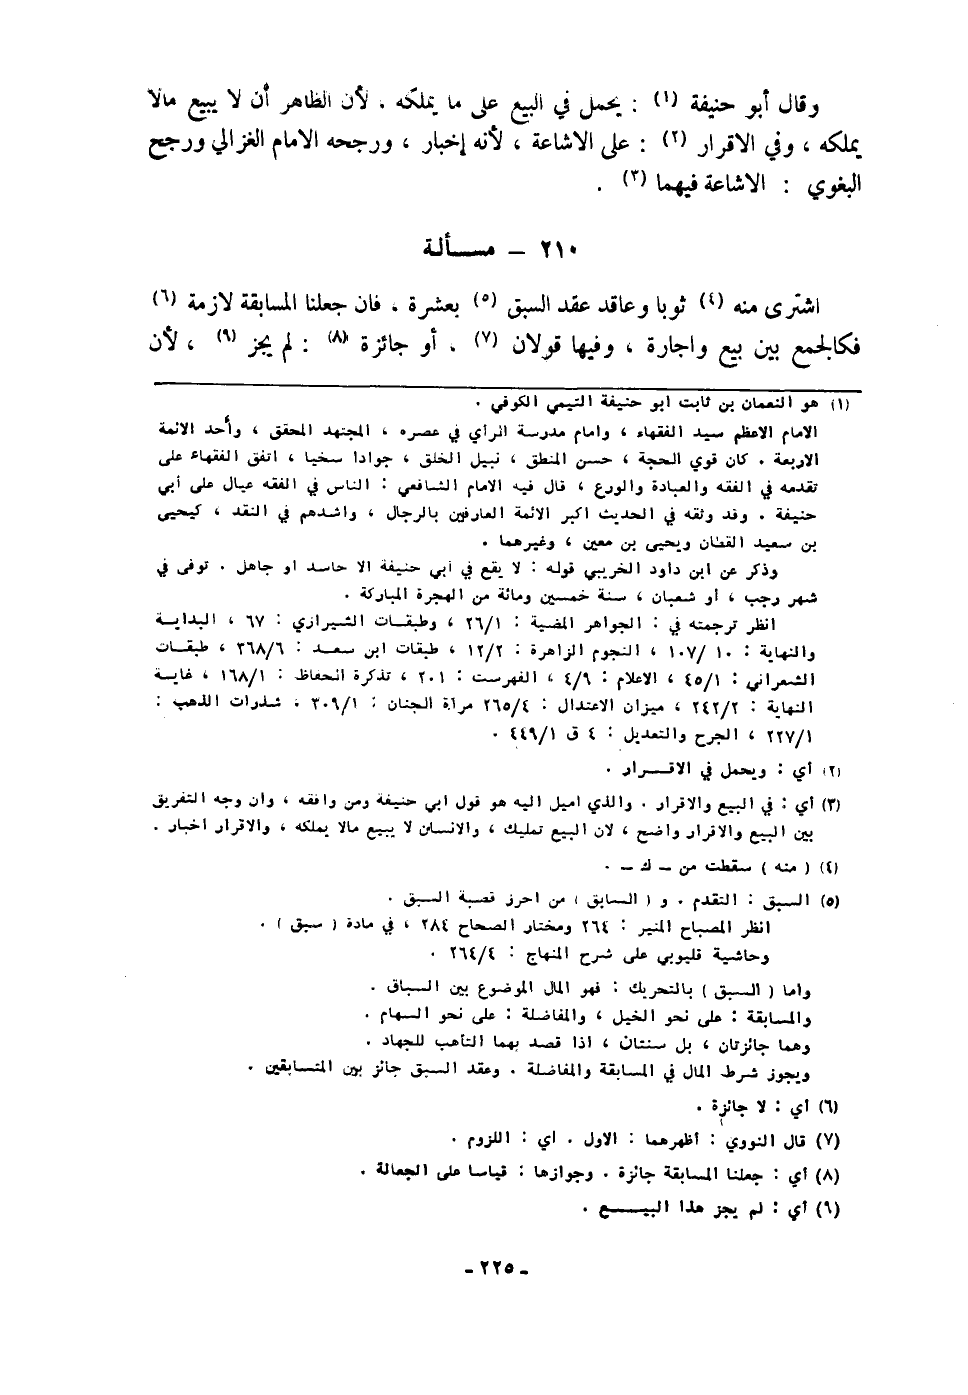 وقال أبو حنيفة (١) : يحمل في البيع على ما يملكه ، لأن الظاهر أن لا يبيع مالا
يملكه ، وفي الاقرار (٢) : على الاشاعة ، لأنه إخبار ، ورجحه الامام الغزالي ورجح
البغوي : الاشاعة فيهما (٣) .
٢١٠ – مسـألة
اشترى منه (٤) ثوبا وعاقد عقد السبق (٥) بعشرة ، فان جعلنا المسابقة لازمة (٦)
فكالجمع بين بيع واجارة ، وفيها قولان (٧) ، أو جائزة (٨) : لم يجز (٩) ، لأن
(١) هو النعمان بن ثابت ابو حنيفة التيمي الكوفي .
الامام الاعظم سيد الفقهاء ، وامام مدرسة الرأي في عصره ، المجتهد المحقق ، وأحد الائمة
الاربعة . كان قوي الحجة ، حسن المنطق ، نبيل الخلق ، جوادا سخيا ، اتفق الفقهاء على
تقدمه في الفقه والعبادة والورع ، قال فيه الامام الشافعي : الناس في الفقه عيال على أبي
حنيفة . وقد وثقه في الحديث اكبر الائمة العارفين بالرجال ، واشدهم في النقد ، كيحيى
بن سعيد القطان ويحيى بن معين ، وغيرهما .
وذكر عن ابن داود الخريبي قوله : لا يقع في أبي حنيفة الا حاسد او جاهل . توفى في
شهر رجب ، أو شعبان ، سنة خمسين ومائة من الهجرة المباركة .
انظر ترجمته في : الجواهر المضية : ٢٦/١ ، وطبقـات الشيرازي : ٦٧ ، البدايـة
والنهاية : ١٠ /١٠٧ ، النجوم الزاهرة : ١٢/٢ ، طبقات ابن سعـد : ٣٦٨/٦ ، طبقـات
الشعراني : ٤٥/١ ، الاعلام : ٤/٩ ، الفهرست : ٢٠١ ، تذكرة الحفاظ : ١٦٨/١ ، غايـة
النهاية : ٢٤٢/٢ ، ميزان الاعتدال : ٢٦٥/٤ مرآة الجنان : ٣٠٩/١ ، شذرات الذهب :
٢٢٧/١ ، الجرح والتعديل : ٤ ق ٤٤٩/١ .
(٢) أي : ويحمل في الاقـرار .
(٣) أي : في البيع والاقرار . والذي اميل اليه هو قول ابي حنيفة ومن وافقه ، وان وجه التفريق
بين البيع والاقرار واضح ، لان البيع تمليك ، والانسان لا يبيع مالا يملكه ، والاقرار اخبار .
(٤) ( منه ) سقطت من – ك – .
(٥) السبق : التقدم . و ( السابق ) من احرز قصبة السبق .
انظر المصباح المنير : ٢٦٤ ومختار الصحاح ٢٨٤ ، في مادة ( سبق ) .
وحاشية قليوبي على شرح المنهاج : ٢٦٤/٤ .
واما ( السبق ) بالتحريك : فهو المال الموضوع بين السباق .
والمسابقة : على نحو الخيل ، والمفاضلة : على نحو السهام .
وهما جائزتان ، بل سنتان ، اذا قصد بهما التأهب للجهاد .
ويجوز شرط المال في المسابقة والمفاضلة . وعقد السبق جائز بين المتسابقين .
(٦) أي : لا جائزة .
(٧) قال النووي : أظهرهما : الاول . اي : اللزوم .
(٨) أي : جعلنا المسابقة جائزة . وجوازها : قياسا على الجعالة .
(٩) أي : لم يجز هذا البيـع .
– ٢٢٥ –